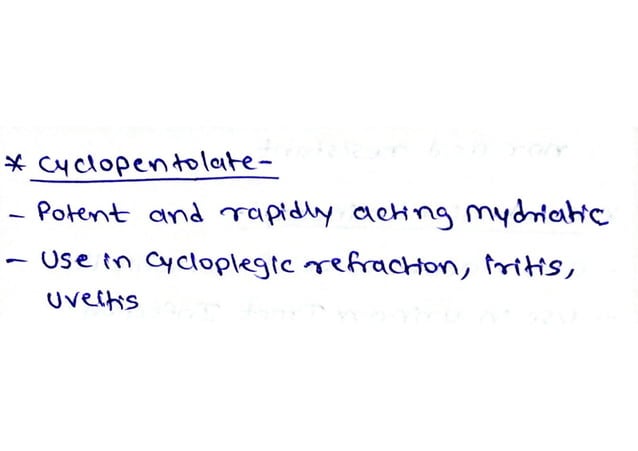 * Cyclopentolate-
- Potent and rapidly acting mydriatic
- Use in Cycloplegic refraction, iritis,
uveitis